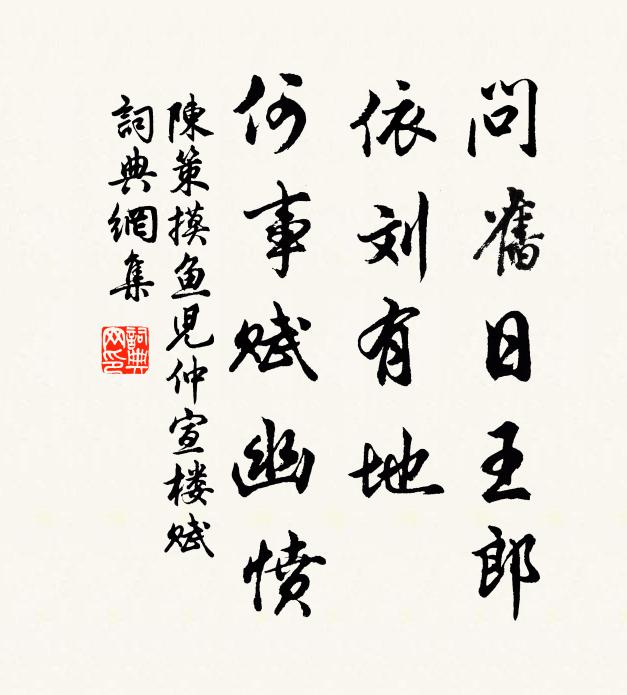 問舊日王郎
依刘有地
何事赋幽憤
陳策摸鱼児仲宣楼赋
詞典網集
詞典网印